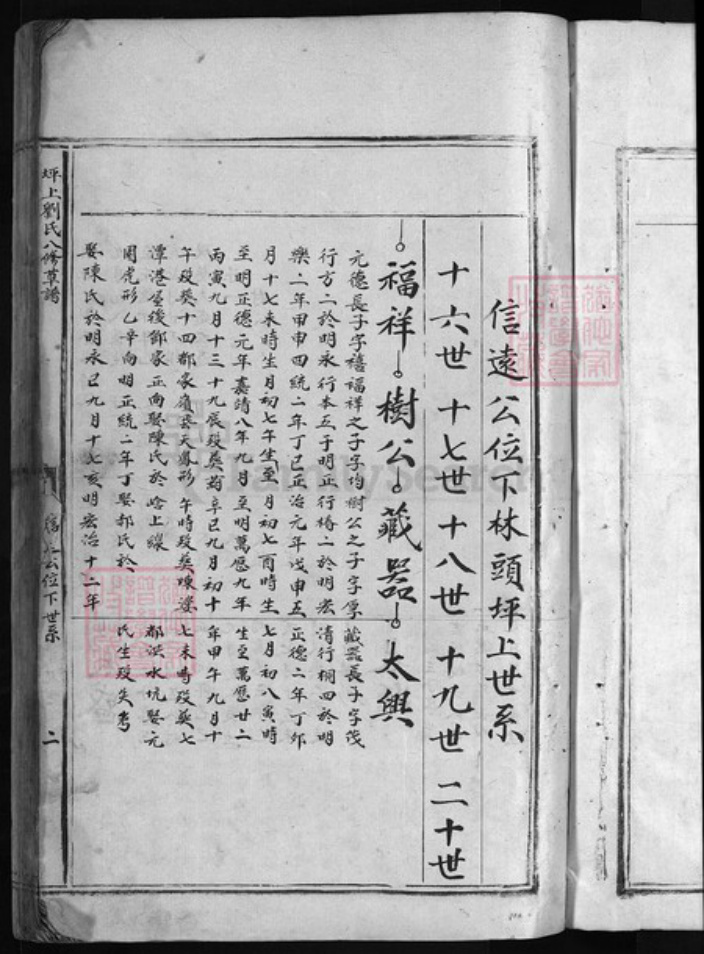 信遠公位下林頭坪上世系
十六世 十七世 十八世 十九世 二十世
福祥 樹公 藏器 太興
元德長子字禧福祥之子字均樹公之子字厚藏器長子字茂
行方二於明永行本五于明正行椿二於明宏清行桐四於明
樂二年甲申四統二年丁巳正治元年戊申五正德二年丁卯
月十七未時生月初七午生至月初七酉時生七月初八寅時
至明正德元年嘉靖八年九月至明萬歷九年生至萬歷廿二
丙寅九月十三十九辰歿葬 辛巳九月初十年甲午九月十
午歿葬十四都家嶺 天鳳形午時歿葬陳婆七未時歿葬七
潭港屋後鄧家正向娶陳氏於 上都洪水坑娶元
團虎形乙辛向明正統二年丁娶郝氏於 氏生歿失考
娶陳氏於明永己九月十七亥明宏治十二年
坪上劉氏八修草譜
信 公位下世系
二
FamilySearch